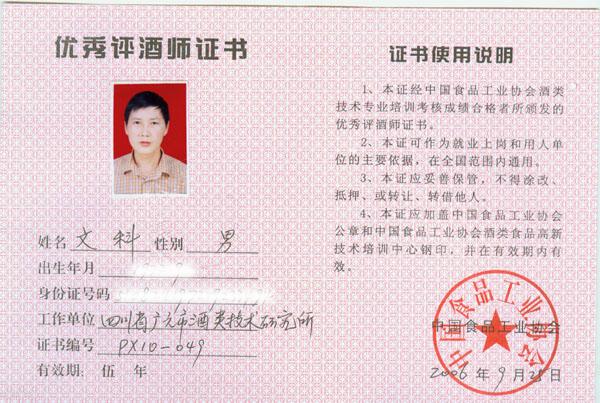 优秀评酒师证书
姓名 文科 性别 男
出生年月
身份证号码
工作单位 四川省广元市酒类技术研究所
证书编号 PX10-049
有效期: 伍 年
证书使用说明
1、本证经中国食品工业协会酒类
技术专业培训考核成绩合格者所颁发的
优秀评酒师证书。
2、本证可作为就业上岗和用人单
位的主要依据，在全国范围内通用。
3、本证应妥善保管，不得涂改、
抵押、或转让、转借他人。
4、本证应加盖中国食品工业协会
公章和中国食品工业协会酒类食品高新
技术培训中心钢印，并在有效期内有
效。
中国食品工业协会
中国食品工业协会
2006 年 9 月 28 日